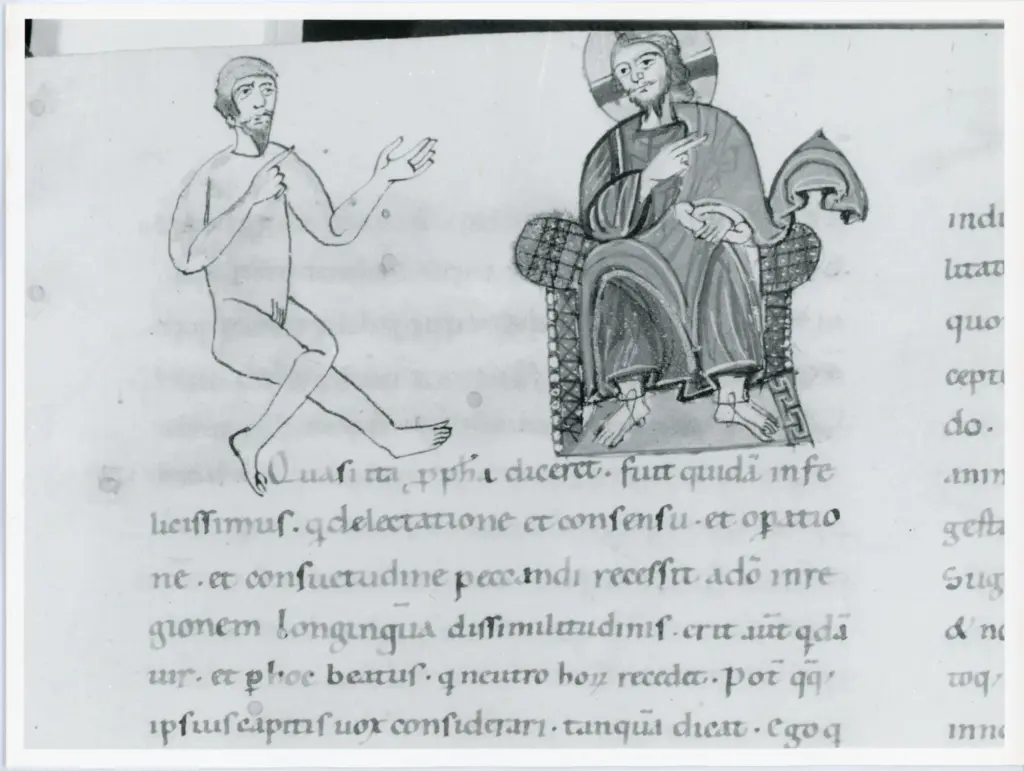 Quasi ita ꝓph̄a diceret. fuit quidā infe
licissimus. q delectatione et consensu. et oꝑatio
nē. et consuetudine peccandi recessit a dō in re
gionem longinq̄ua dissimilitudinis. erit aut̄ qdā
uir. et ꝑ hoc beatus. q neutro hoꝝ recedet. Pot̄ qq,
ipsius capitis uox considerari. tanquā dicat. Ego q
indu
litat
quo
cepti
do.
anim
gesta
Sug
& no
toq,
inno